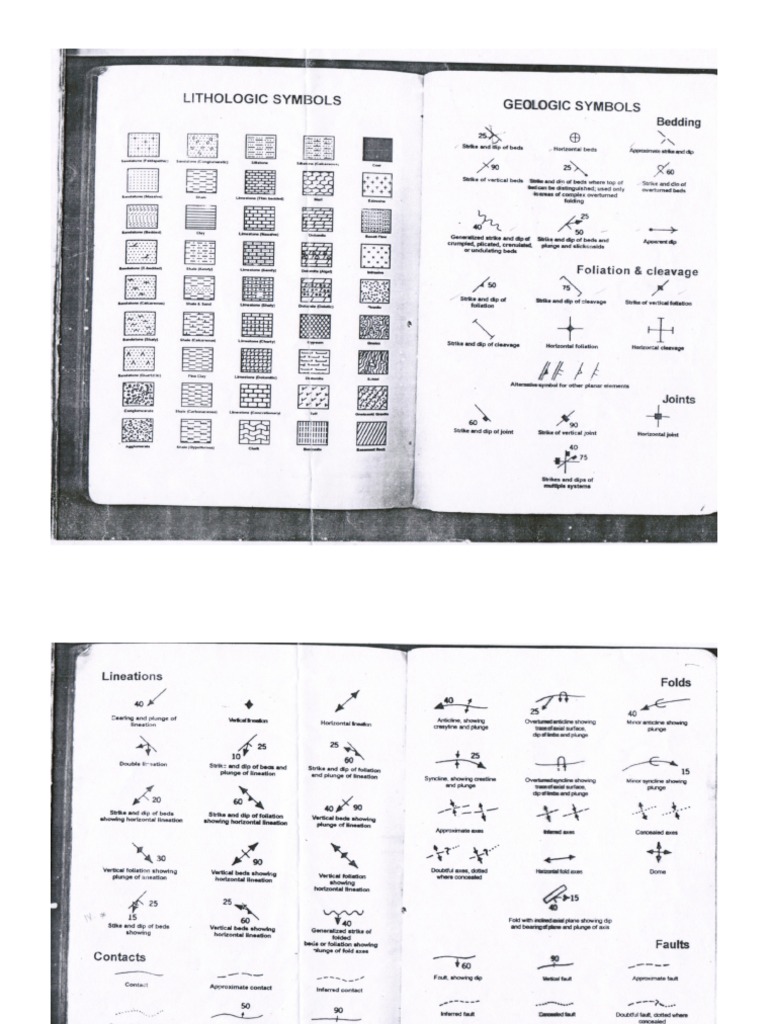 LITHOLOGIC SYMBOLS
Siltstone
Coal
Sandstone (Massive)
Shale
Limestone (Thin bedded)
Marl
Extrusive
Sandstone (Bedded)
Clay
Limestone (Massive)
Dolomite
Sandstone (X-bedded)
Shale (Sandy)
Limestone (Sandy)
Dolomite (Algal)
Intrusive
Sandstone (Calcareous)
Shale & Sand
Limestone (Shaly)
Dolomite (Oolitic)
Sandstone (Shaly)
Shale (Calcareous)
Limestone (Cherty)
Gypsum
Gneiss
Sandstone (Quartzitic)
Fire Clay
Limestone (Dolomitic)
Schist
Conglomerate
Shale (Carbonaceous)
Limestone (Concretionary)
Salt
Agglomerate
Chalk
Basement Rock
GEOLOGIC SYMBOLS
Bedding
25
Strike and dip of beds
Horizontal beds
Approximate strike and dip
90
Strike of vertical beds
25
Strike and dip of beds where top of
bed can be distinguished; used only
in areas of complex overturned
folding
60
Strike and dip of
overturned beds
40
Generalized strike and dip of
crumpled, plicated, crenulated,
or undulating beds
25
50
Strike and dip of beds and
plunge and slickensids
Apparent dip
Foliation & cleavage
50
Strike and dip of
foliation
75
Strike and dip of cleavage
Strike of vertical foliation
Strike and dip of cleavage
Horizontal foliation
Horizontal cleavage
Alternative symbol for other planar elements
Joints
60
Strike and dip of joint
90
Strike of vertical joint
Horizontal joint
40
75
Strikes and dips of
multiple systems
Lineations
40
Bearing and plunge of
lineation
Vertical lineation
Horizontal lineation
Double lineation
25
10
Strike and dip of beds and
plunge of lineation
25
60
Strike and dip of foliation
and plunge of lineation
20
Strike and dip of beds
showing horizontal lineation
60
Strike and dip of foliation
showing horizontal lineation
40 90
Vertical beds showing
plunge of lineation
30
Vertical foliation showing
plunge of lineation
90
Vertical beds showing
horizontal lineation
Vertical foliation
showing
horizontal lineation
25
15
Stike and dip of beds
showing
25
60
Vertical beds showing
horizontal lineation
40
Generalized strike of
folded
beds or foliation showing
plunge of fold axes
Contacts
Contact
Approximate contact
Inferred contact
50
90
Folds
40
Anticline, showing
crestline and plunge
25
Overturned anticline showing
trace of axial surface,
dip of limbs and plunge
40
Minor anticline showing
plunge
25
Syncline, showing crestline
and plunge
Overturned syncline showing
trace of axial surface,
dip of limbs and plunge
15
Minor syncline showing
plunge
Approximate axes
Inferred axes
Concealed axes
Doubtful axes, dotted
where concealed
Horizontal fold axes
Dome
15
40
Fold with inclined axial plane showing dip
and bearing of plane and plunge of axis
Faults
60
Fault, showing dip
90
Vertical fault
Approximate fault
Inferred fault
Concealed fault
Doubtful fault, dotted where
concealed